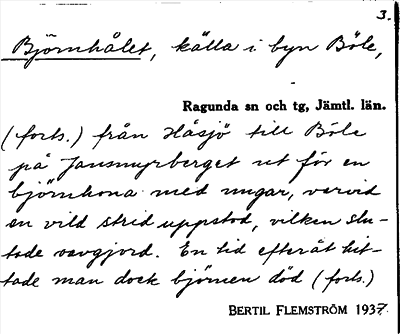 3.
Björnhålet, källa i byn Böle,
Ragunda sn och tg, Jämtl. län.
(forts.) från Håsjö till Böle
på Jansmyrberget ut för en
björnhona med ungar, varvid
en vild strid uppstod, vilken slu-
tade oavgjord. En tid efteråt hit-
tade man dock björnen död (forts.)
BERTIL FLEMSTRÖM 1937.